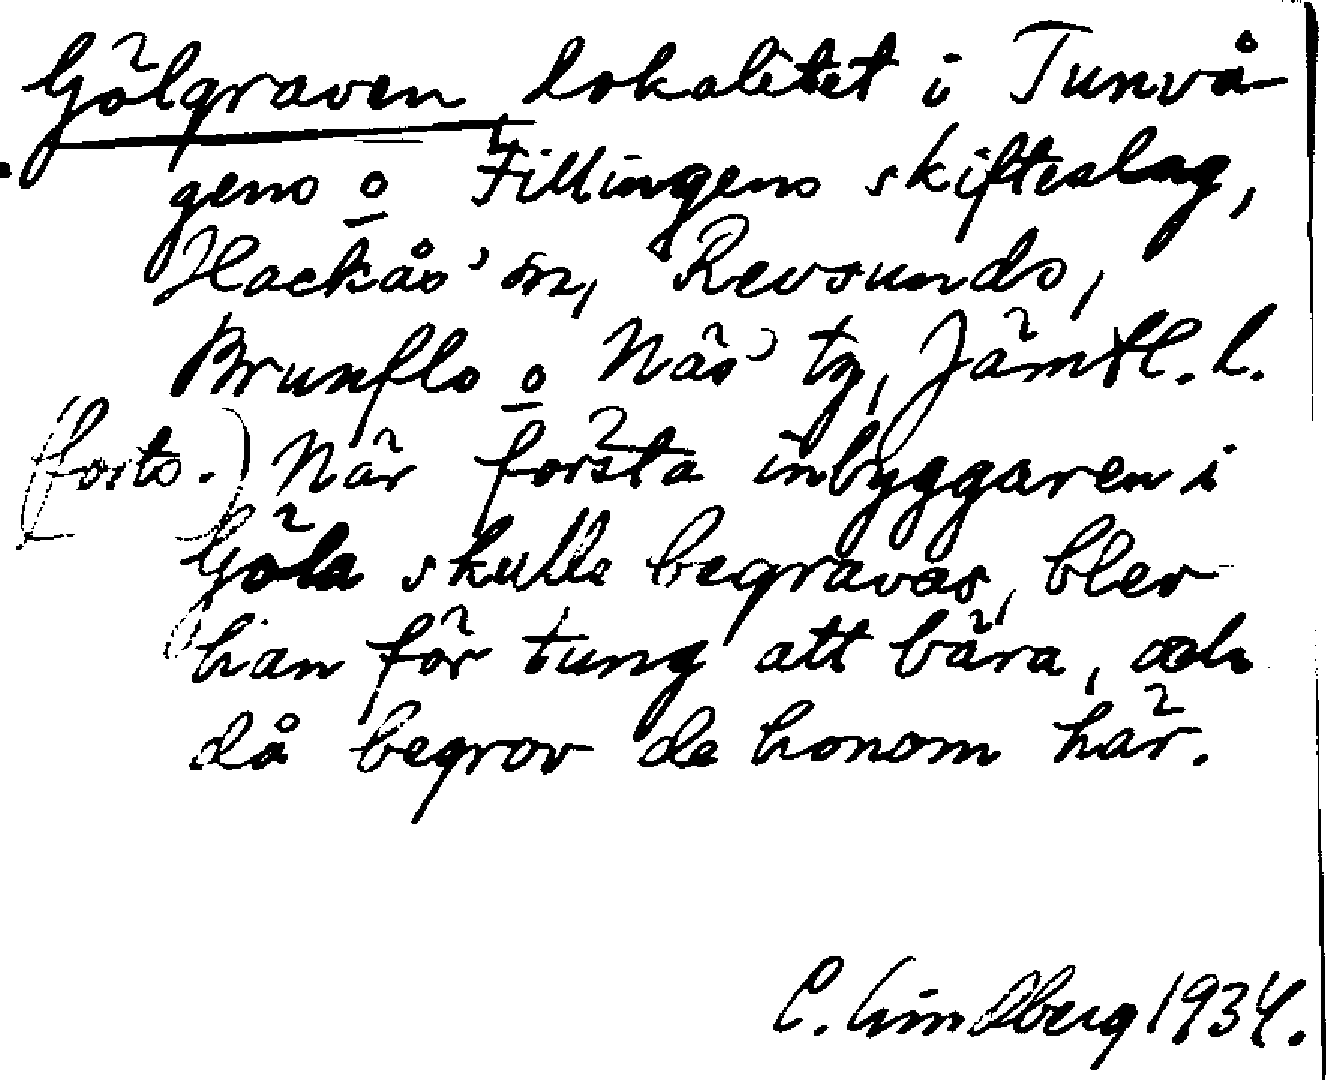 Gölgraven lokalitet i Tunvå-
gens o Fillingens skifteslag,
Hackås' sn, Revsunds,
Brunflo o Näs' tg, Jämtl. l.
(forts.) När första inbyggaren i
Göla skulle begravas, blev
han för tung att bära, och
då begrov de honom här.
C. Lindberg 1934.